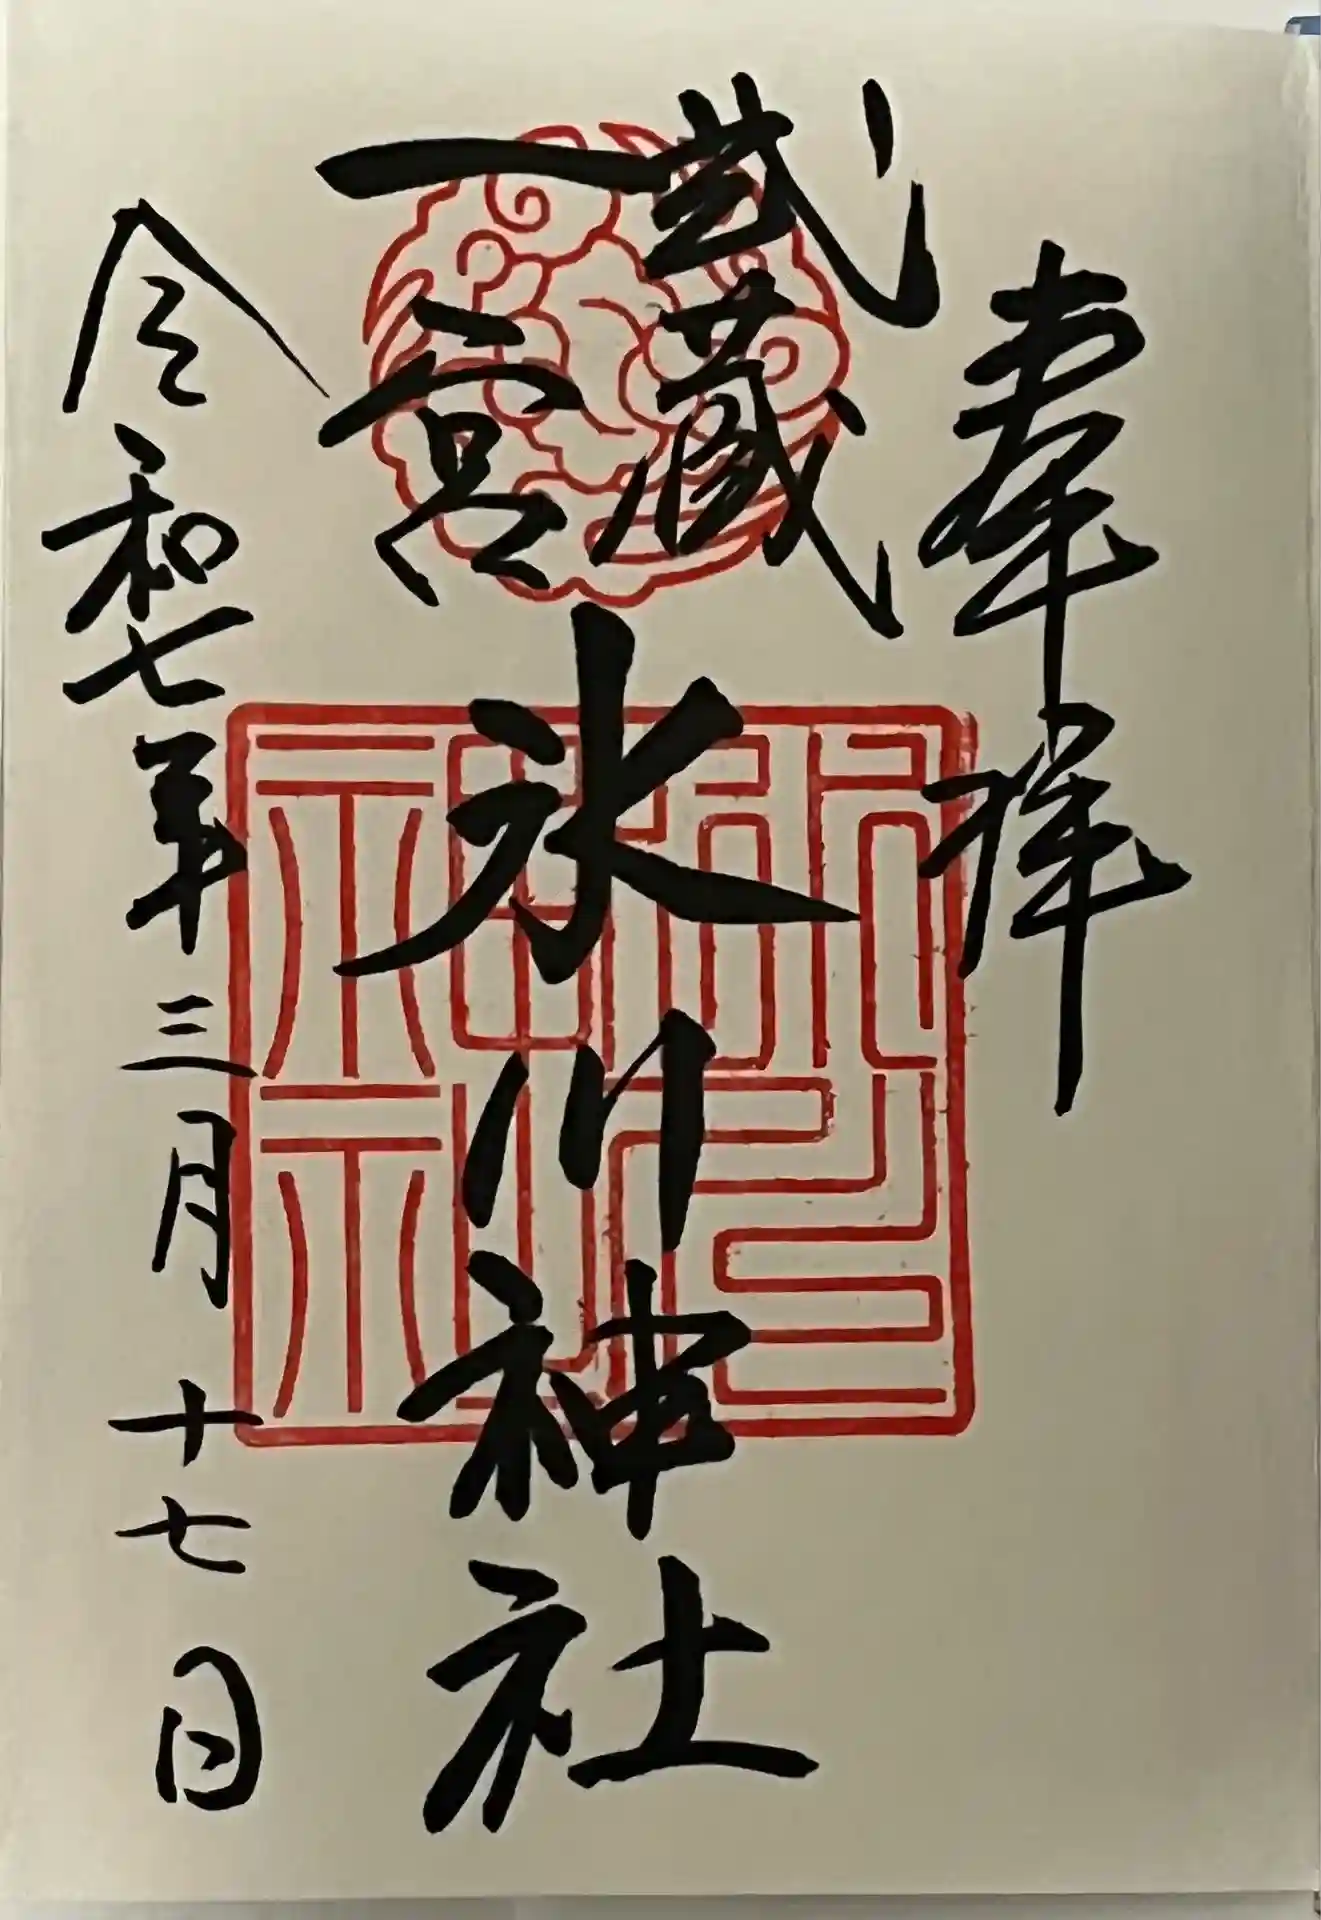 奉拝
武蔵
一宮
氷川神社
令和七年三月十七日
氷川
神社